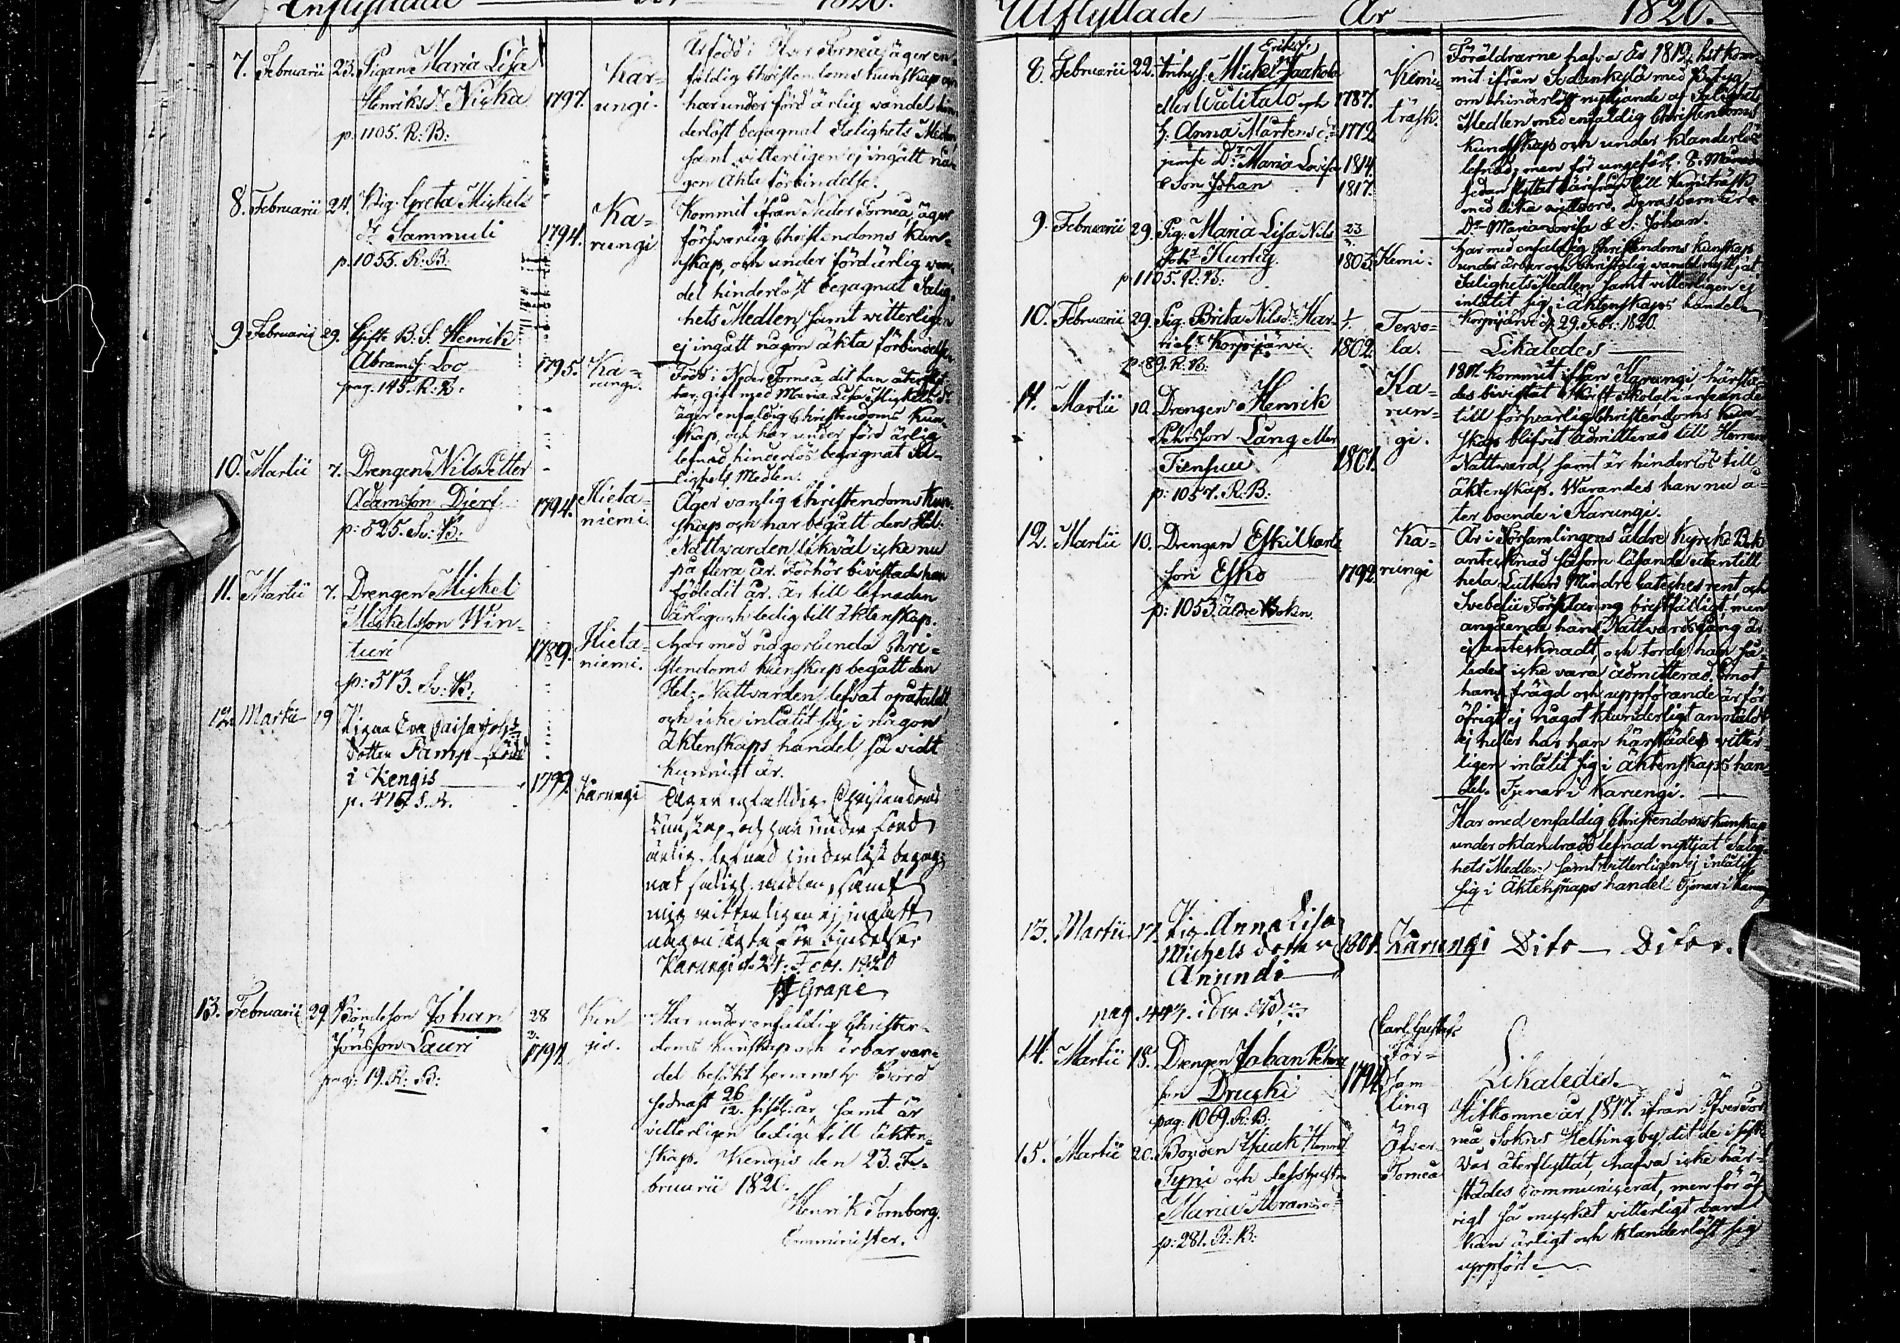 Inflyttade År 1820.
7. Februarii 23. Pigan Maria Lisa
Henriksdr Niska
p. 1105. R. B:
1797.
Kar-
ungi.
Är född i Öfver Torneå, äger en-
faldig Christendoms kunskap och
har under förd ärlig wandel hin-
derlöst begagnat Salighets Medlen
samt witterligen ej ingått nå-
gon äkta förbindelse.
8. Februarii 24. Pig. Greta Mickels
dr Sammuli
p. 1055. R. B:
1794.
Ka-
rungi
Kommit ifrån Neder Torneå, äger
försvarlig Christendoms kun-
skap, och under förd ärlig wan-
del hinderlöst begagnat Salig-
hets Medlen samt witterligen
ej ingått någon äkta förbindelse.
9. Februarii 29. Gifte B. S. Henrik
Abramss. Loo
pag. 145. R. B:
1795.
Ka-
rungi.
Född i Neder Torneå, dit han återflyt-
tar, gift med Maria Lisa Mickelsdr
äger enfaldig Christendoms kun-
skap, och har under förd ärlig
lefnad hinderlöst begagnat Sa-
lighets Medlen.
10. Martii 7. Drengen Nils Petter
Adamsson Djerf
p: 595. Sv: B:
1794.
Hieta-
niemi.
Äger vanlig Christendoms kun-
skap och har begått den Hel.
Nattvarden likväl icke nu
på flera år. Förhör bivistade han
födledit år. Är till lefnaden
ärlig och ledig till äktenskap.
11. Martii 7. Drengen Mickel
Mickelsson Win-
turi
p: 513. Sv: B:
1789.
Hieta-
niemi.
har med någorlunda Chri-
stendoms kunskap begått den
Hel. Nattvarden, lefvat opåtaldt
och icke inlåtit sig i någon
äktenskaps handel, så vidt
kunnigt är.
12. Martii 19 Pigan Eva Caisa
dotter Tamp född
i Kengis
p. 416. S. B.
1799.
Karungi
Äger enfaldig Christendoms
kunskap, och har under förd
ärlig lefnad hinderlöst begag-
nat salighets medlen, samt
mig witterligen ej ingått
någon ägta förbindelse
Karungi d. 21. Febr. 1820
Grape
13. Februarii 29. Bondeson Johan
Jönsson Lauri
pag: 19. R: B:
28
1791.
Ken-
gis.
Har under enfaldig Christen-
doms kunskap och ärbar van-
del besökt Herrans h. Bord
sednast 26/12 sistl. år, samt är
vitterligen ledig till äkten-
skap. Kengis den 23. Fe-
bruarii 1820.
Henrik Fornberg.
Comminister.
Utflyttade År 1820.
8. Februarii 22. Inhys. Mickel Eriks. Jaakola
eller Wälitalo och
h. Anna Mårtens dr
jemte Dr. Maria Lovisa
& Son Johan
1787.
1772.
1814.
1817.
Kemi-
träsk.
Föräldrarne hafva År 1812 hit kom-
mit ifrån Sodankylä med Betyg
om hinderlöst nyttjande af Salighets
Medlen med enfaldig Christendoms
kundskap och under klanderlös
lefnad, men för ungefär 8. Månader
sedan flyttat härifrån till Kemiträsk
med lika wittsord. Deras barn är
Dr Maria Lovisa & S. Johan.
9. Februarii 29. Pig. Maria Lisa Nils
dotr Kurtig
p. 1105. R. B.
23
1803.
Kemi.
Har med enfaldig Christendoms kunskap
under ärbar och Christelig wandel nyttjat
Salighets Medlen samt witterligen ej
inlåtit sig i äktenskaps handel.
Korpijärvi d. 29. Febr. 1820.
10. Februarii 29. Pig. Brita Nilsdr Kar-
Korpijärvi
p. 89. R. B.
1802.
Tervo-
la.
Likaledes
11. Martii 10. Drengen Henrik
Pehrsson Lång eller
Tiensuu
p: 1057. R. B:
1801.
Ka-
run-
gi.
1811 kommit ifrån Karungi, härstä-
des bivistat Skriftskolai anseende
till försvarlig Christendoms kun-
skap blifvit admitterad till Herrans
Nattward, samt är hinderlös till
äktenskap. Warandes han nu å-
ter boende i Karungi.
12. Martii 10. Drengen Eskil Karls
son Esko
p: 1053 äldre Boken.
1792.
Ka-
rungi
Är i Församlingens äldre Kyrcko Bok
antecknad såsom läsande utantill
hela Lutheri Mindre Cateches rent och
Svebelii Förklaring bristfälligt, men
angående hans Nattvardsgång är
ej antecknadt, och torde han så-
ledes icke vara admitterad. Emot
hans frägd och uppförande är för
öfrigt ej något klanderligt anmäldt
ej heller har han härstädes witter-
ligen inlåtit sig i äktenskaps han-
del. Tjenar i Karungi.
Har med enfaldig Christendoms kunskap
under oklandrad lefnad nyttjat Salig-
hets Medlen samt witterligen ej inlåtit
sig i äktenskaps handel. Tjenar i Karungi
13. Martii 17. Pig. Anna Lisa
Michels dotter
Anundi
pag. 447. i dw.
1801.
Karungi Dito — Dito.
14. Martii 18. Drengen Johan Pehrs
son Drucki
pag. 1069. R. B.
1794.
Carl Gustafs
För-
sam
ling
Likaledes.
15. Martii 20. Bonden Isaak Henrics
Tyni och dess hustr
Maria Abramsdr
p: 281. R: B:
Öfver
Torneå
Hitkomne år 1817. ifrån Öfver Tor-
neå Sokns Hellingby, dit de i sistl.
Vår återflyttat, hafva icke här-
städes communicerat, men för öf-
rigt så mycket witterligt vara
kan ärligt och klanderlöst sig
uppfört.